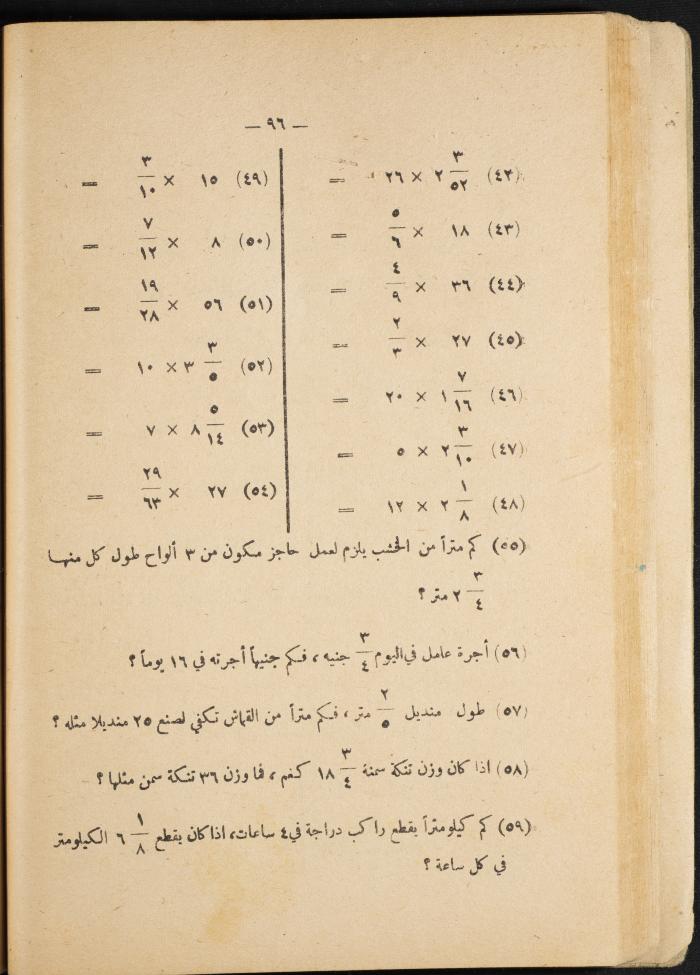 — ٩٦ —
(٤٢) ٢ ٣/٥٢ × ٢٦ =
(٤٣) ١٨ × ٥/٦ =
(٤٤) ٣٦ × ٤/٩ =
(٤٥) ٢٧ × ٢/٣ =
(٤٦) ١ ٧/١٦ × ٢٠ =
(٤٧) ٢ ٣/١٠ × ٥ =
(٤٨) ٢ ١/٨ × ١٢ =
(٤٩) ١٥ × ٣/١٠ =
(٥٠) ٨ × ٧/١٢ =
(٥١) ٥٦ × ١٩/٢٨ =
(٥٢) ٣ ٣/٥ × ١٠ =
(٥٣) ٨ ٥/١٤ × ٧ =
(٥٤) ٢٧ × ٢٩/٦٣ =
(٥٥) كم متراً من الخشب يلزم لعمل حاجز مكون من ٣ ألواح طول كل منها
٢ ٣/٤ متر ؟
(٥٦) أجرة عامل في اليوم ٣/٤ جنيه ، فكم جنيهاً أجرته في ١٦ يوماً ؟
(٥٧) طول منديل ٢/٥ متر ، فكم متراً من القماش تكفي لصنع ٢٥ منديلا مثله ؟
(٥٨) اذا كان وزن تنكة سمنة ١٨ ٣/٤ كغم ، فما وزن ٣٦ تنكة سمن مثلها ؟
(٥٩) كم كيلومتراً يقطع راكب دراجة في ٤ ساعات، اذا كان يقطع ٦ ١/٨ الكيلومتر
في كل ساعة ؟